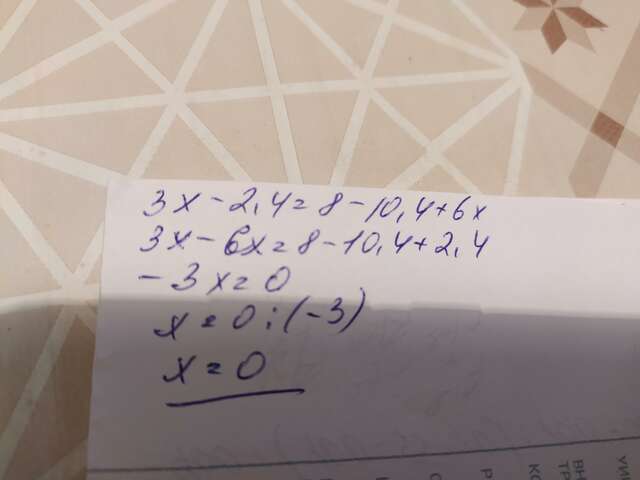 3x - 2,4 = 8 - 10,4 + 6x
3x - 6x = 8 - 10,4 + 2,4
- 3x = 0
x = 0 : (-3)
x = 0